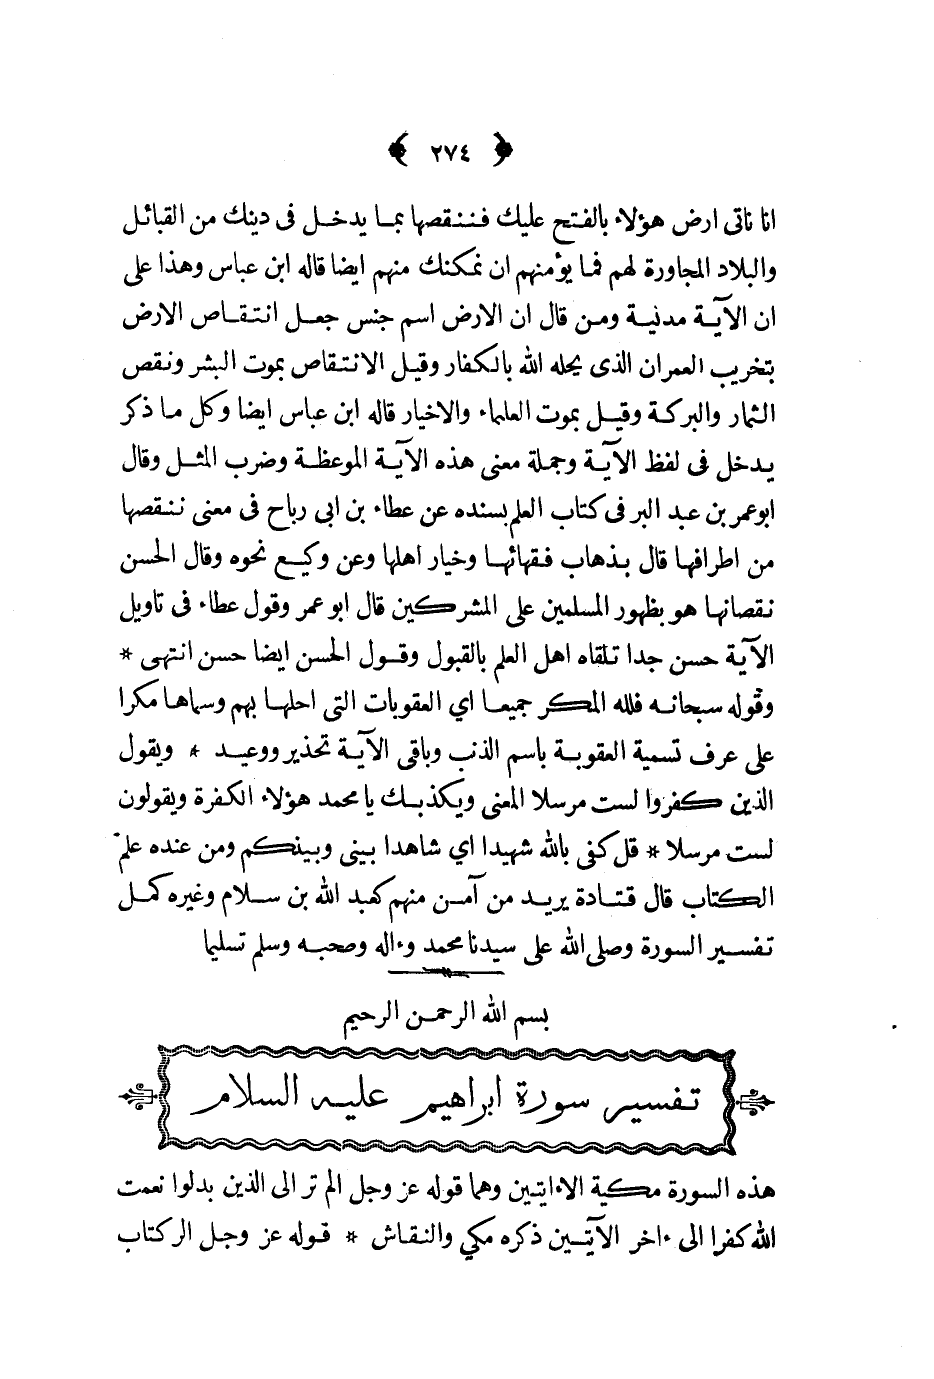 ﴿ ٢٧٤ ﴾
انا ناتى ارض هؤلاء بالفتح عليك فننقصها بما يدخل فى دينك من القبائل
والبلاد المجاورة لهم فما يؤمنهم ان نمكنك منهم ايضا قاله ابن عباس وهذا على
ان الآية مدنية ومن قال ان الارض اسم جنس جعل انتقاص الارض
بتخريب العمران الذى يحله الله بالكفار وقيل الانتقاص بموت البشر ونقص
الثمار والبركة وقيل بموت العلماء والاخيار قاله ابن عباس ايضا وكل ما ذكر
يدخل فى لفظ الآية وجملة معنى هذه الآية الموعظة وضرب المثل وقال
ابو عمر بن عبد البر فى كتاب العلم بسنده عن عطاء بن ابى رباح فى معنى ننقصها
من اطرافها قال بذهاب فقهائها وخيار اهلها وعن وكيع نحوه وقال الحسن
نقصانها هو بظهور المسلمين على المشركين قال ابو عمر وقول عطاء فى تاويل
الآية حسن جدا تلقاه اهل العلم بالقبول وقول الحسن ايضا حسن انتهى *
وقوله سبحانه فلله المكر جميعا اي العقوبات التى احلها بهم وسماها مكرا
على عرف تسمية العقوبة باسم الذنب وباقى الآية تحذير ووعيد * ويقول
الذين كفروا لست مرسلا المعنى ويكذبك يا محمد هؤلاء الكفرة ويقولون
لست مرسلا * قل كفى بالله شهيدا اي شاهدا بينى وبينكم ومن عنده علم
الكتاب قال قتادة يريد من آمن منهم كعبد الله بن سلام وغيره كمل
تفسير السورة وصلى الله على سيدنا محمد وءاله وصحبه وسلم تسليما
بسم الله الرحمن الرحيم
تفسير سورة ابراهيم عليه السلام
هذه السورة مكية الا ءايتين وهما قوله عز وجل الم تر الى الذين بدلوا نعمت
الله كفرا الى ءاخر الآيتين ذكره مكي والنقاش * قوله عز وجل الر كتاب